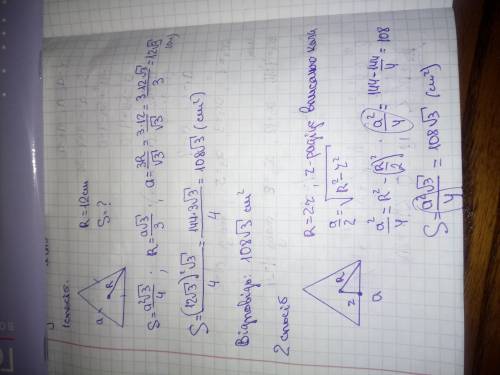 1 спосіб.
a
R
R=12cm
S-?
S=a²√3/4 ; R=a√3/3 ; a=3R/√3=3·12/√3=3·12√3/3=12√3
(см)
S=(12√3)²√3/4=144·3√3/4=108√3 (см²)
Відповідь: 108√3 см²
2 спосіб
R
r
a
R=2r ; r-радіус вписаного кола
a/2=√R²-r²
a²/4=R²-(R/2)² · a²/4=144-144/4=108
S=a²√3/4=108√3 (см²)